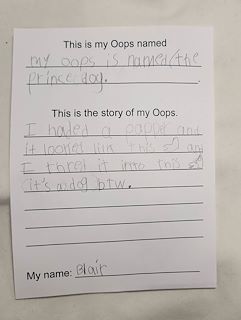 This is my Oops named
my oops is named the
prince dog.
This is the story of my Oops.
I haded a papper and
it looked lik this and
I threl it into this
(it's a dog btw.
My name: Blair